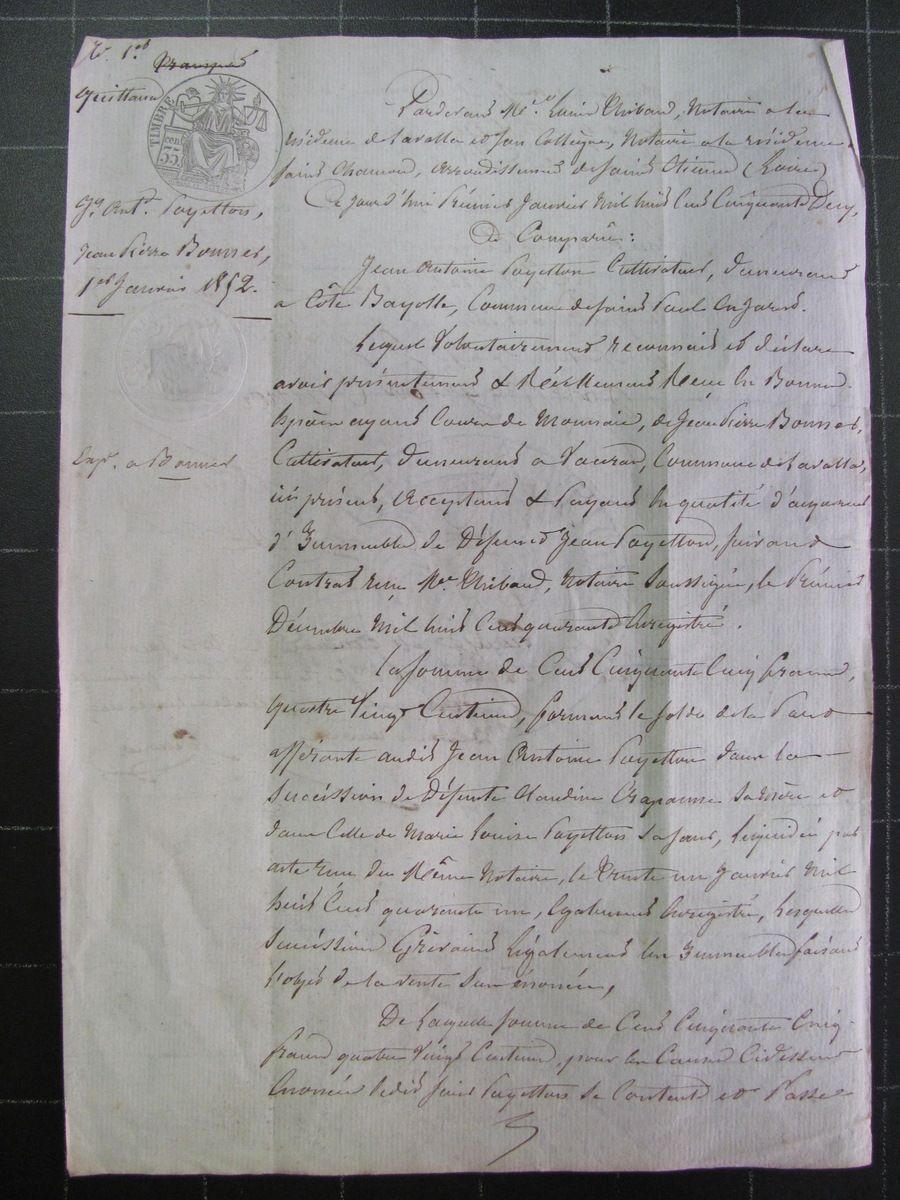 Quittance
TIMBRE
35 cen
Jn. Ant. Payetton,
Jean Pierre Bonnet,
1er Janvier 1852.
Exp. a Bonnet
Pardevant Me. Thibaud, Notaire a la
résidence de Lavalla et son Collègue, Notaire a la résidence
saint Chamond, arrondissement de saint Etienne (Loire)
Ce jourd'hui Premier Janvier Mil huit Cent Cinquante Deux,
a Comparu:
Jean Antoine Payetton Cultivateur, demeurant
a Côte Bayolle, Commune de saint Paul en Jarret.
Lequel Volontairement reconnait et déclare
avoir présentement & Réellement Reçu en Bonnes
Espèces ayant Cours de Monnaie, de Jean Pierre Bonnet,
Cultivateur, demeurant a Commune de Lavalla,
ici présent, acceptant & Payant en qualité d'acquereur
d'Immeubles de Défunt Jean Payetton, suivant
Contrat reçu Me. Thibaud, Notaire soussigné, le Premier
Décembre Mil huit Cent quarante Enregistré.
La somme de Cent Cinquante Cinq francs,
quatre Vingt Centimes, formant le solde de la Part
afférante audit Jean Antoine Payetton dans la
succession de Défunte Claudine sa Mère et
dans Celle de Marie Louise Payetton sa sœur, liquidée par
acte reçu du Même Notaire, le trente un Janvier Mil
huit Cent quarante un, également Enregistré, Lesquelles
successions Grévaient Légalement les Immeubles faisant
l'objet de la vente sus énoncée,
De Laquelle somme de Cent Cinquante Cinq
francs quatre Vingt Centimes, pour les Causes Cidessus
Enoncée ledit Payetton se Contente et Passe